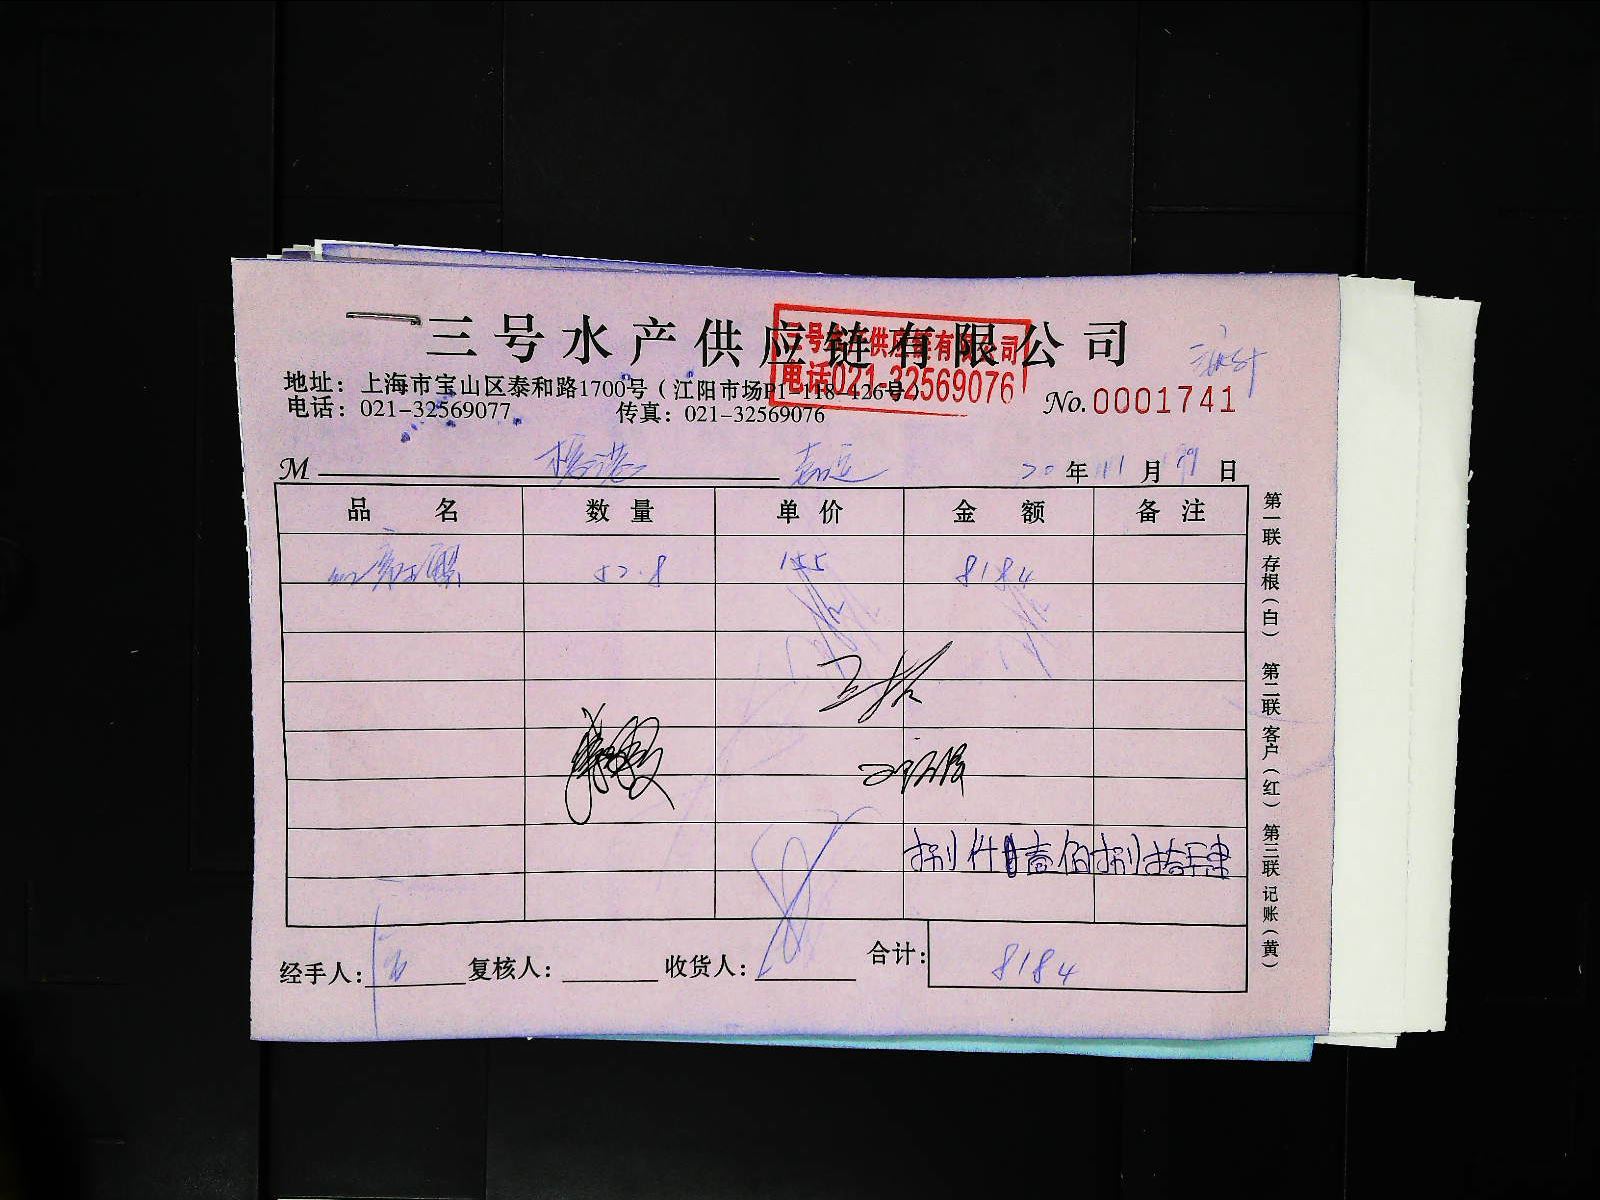 三号水产供应链有限公司
三号水产供应链有限公司
电话021-32569076
地址：上海市宝山区泰和路1700号（江阳市场P1-118-426号）
电话：021-32569077 传真：021-32569076
No.0001741
M 20年11月 日
品名 数量 单价 金额 备注
52.8 155 8184
捌仟壹佰捌拾肆
经手人： 复核人： 收货人： 合计：8184
第一联 存根（白） 第二联 客户（红） 第三联 记账（黄）